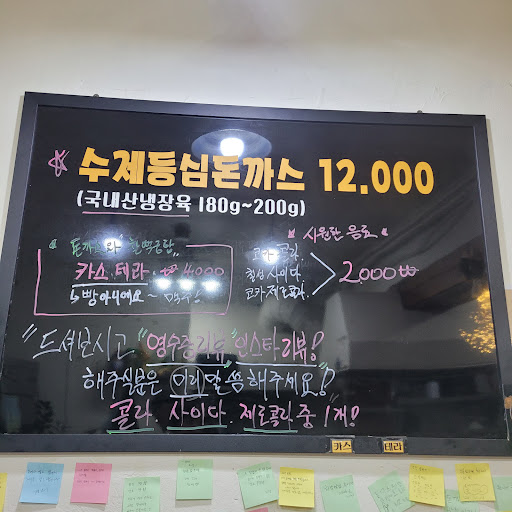 수제등심돈까스 12.000
(국내산냉장육 180g~200g)
돈까스와 찰떡궁합
카스.테라. ₩4000
↳빵아니에요~
시원한 음료
코카콜라.
칠성사이다.
코카제로콜라.
2.000₩
"드셔보시고 "영수증리뷰" 인스타리뷰!
해주실분은 미리말씀해주세요!
콜라. 사이다. 제로콜라 중 1개!
카스 테라